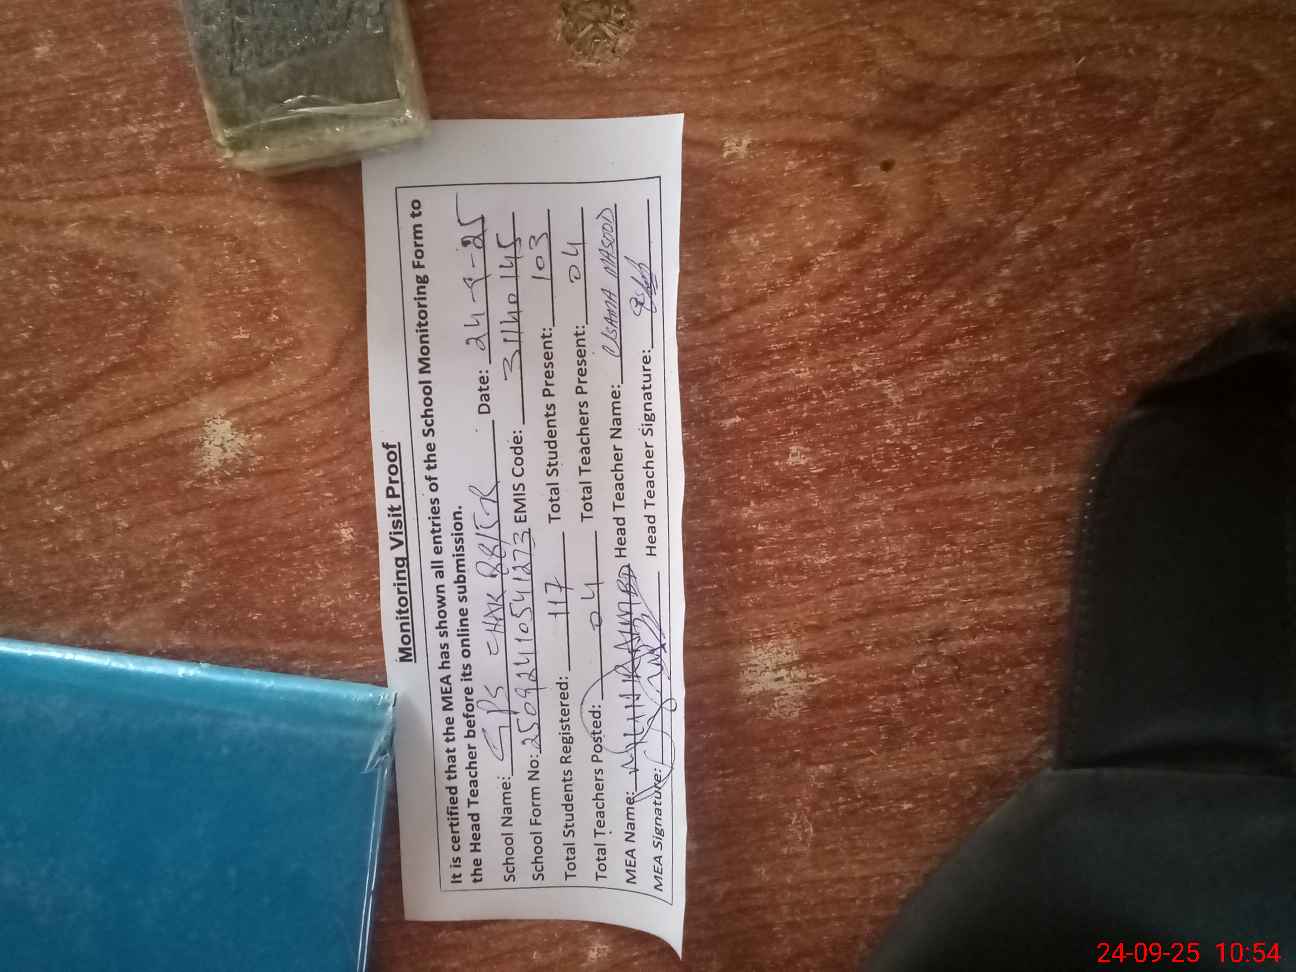 Monitoring Visit Proof
It is certified that the MEA has shown all entries of the School Monitoring Form to
the Head Teacher before its online submission.
School Name: GPS CHAK 88/15-R Date: 24-9-25
School Form No: 250924110541273 EMIS Code: 31140145
Total Students Registered: 117 Total Students Present: 103
Total Teachers Posted: 04 Total Teachers Present: 04
MEA Name: Head Teacher Name: USAMA MASOOD
MEA Signature: Head Teacher Signature:
24-09-25 10:54